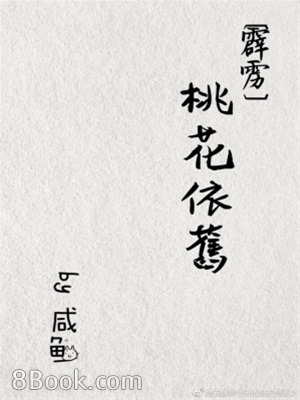 [霹雳]
桃花依舊
by 咸鱼
8Book.com